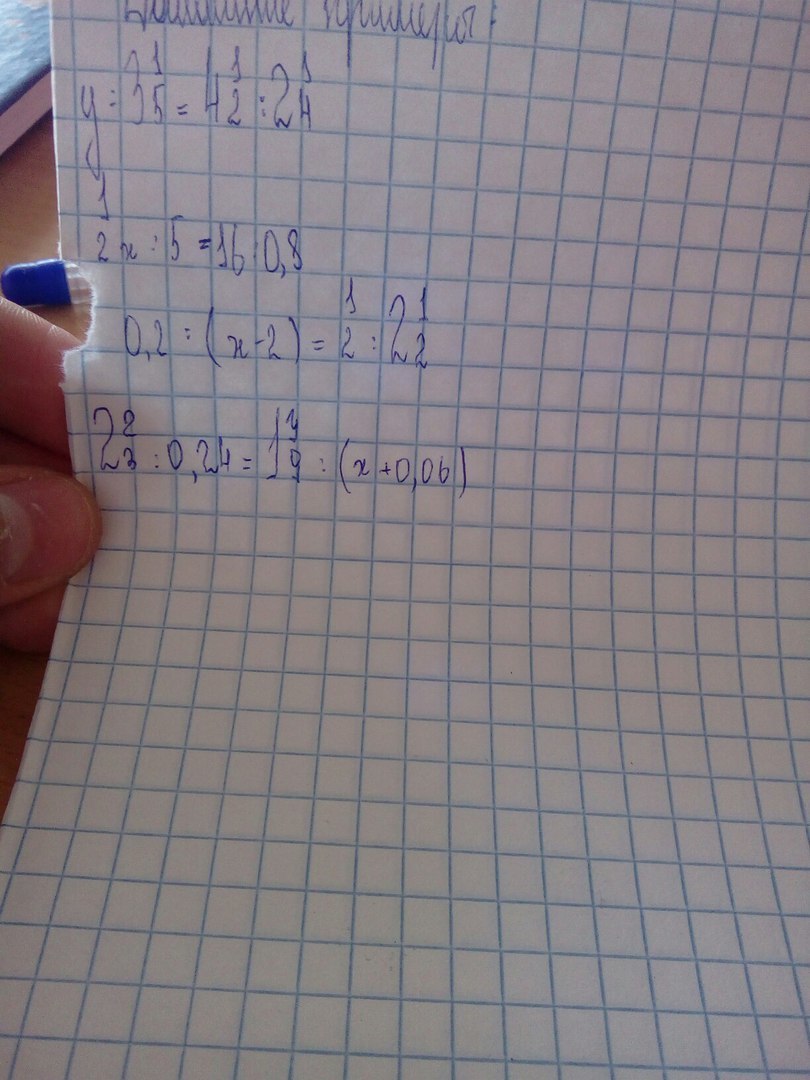 примеры:
y : 3 1/5 = 4 1/2 : 2 1/4
1/2 x : 5 = 16 : 0,8
0,2 : (x - 2) = 1/2 : 2 1/2
2 2/3 : 0,24 = 1 y/9 : (x + 0,06)